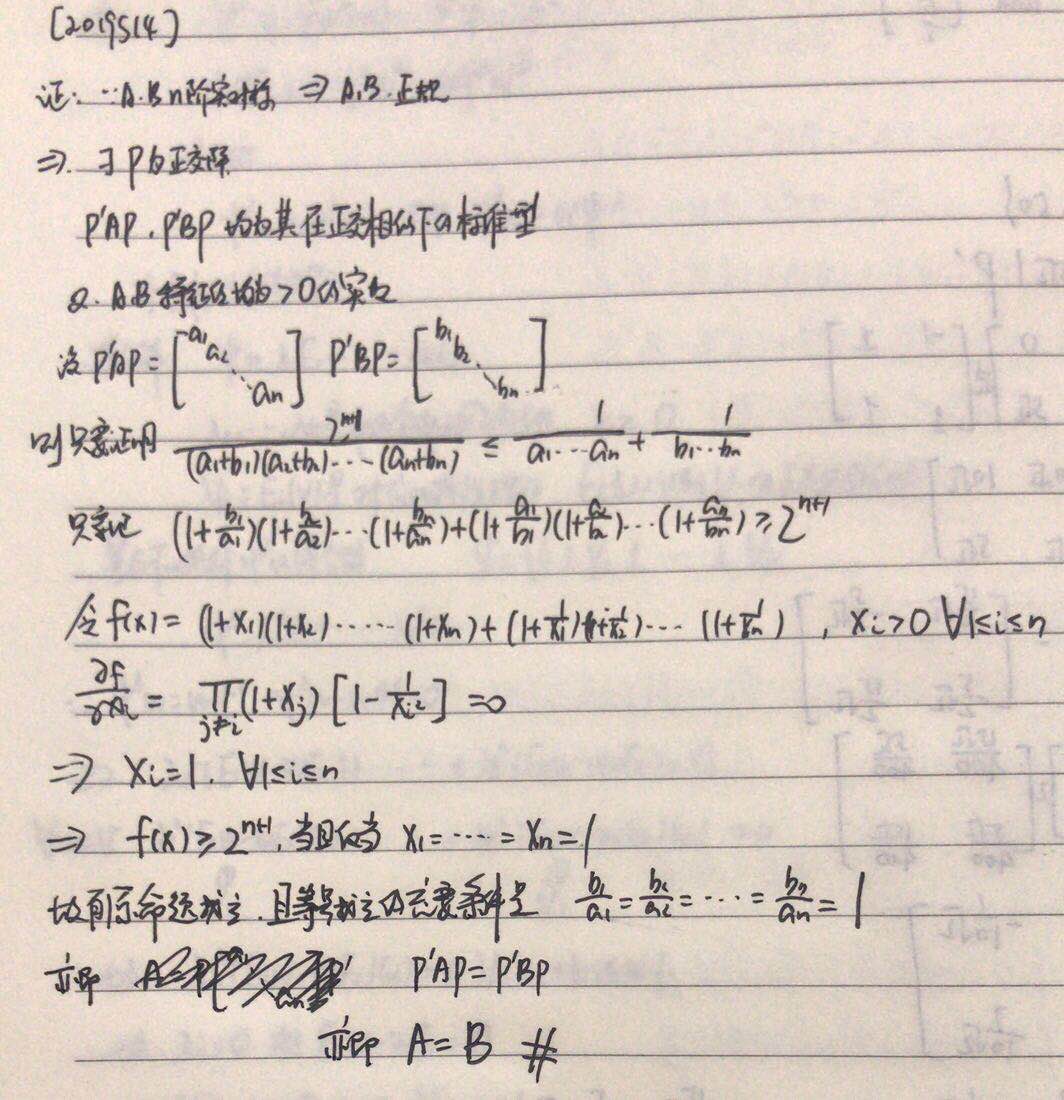 [2019S14]
证: ∵A.B n阶实对称 ⇒ A.B.正规
⇒. ∃P为正交阵
P'AP, P'BP 均为其在正交相似下的标准型
又. A.B特征值均为>0的实数
设 P'AP = [a1 a2 ⋱ an] P'BP = [b1 b2 ⋱ bn]
则只要证明 2^{n+1}/((a1+b1)(a2+b2)⋯⋯(an+bn)) ≤ 1/(a1⋯an) + 1/(b1⋯bn)
只要证 (1+b1/a1)(1+b2/a2)⋯(1+bn/an)+(1+a1/b1)(1+a2/b2)⋯(1+an/bn) ≥ 2^{n+1}
令 f(x) = (1+x1)(1+x2)⋯⋯(1+xn)+(1+1/x1)(1+1/x2)⋯(1+1/xn), xi>0 ∀1≤i≤n
∂f/∂xi = ∏_{j≠i}(1+xj)[1-1/xi²] =0
⇒ xi=1. ∀1≤i≤n
⇒ f(x) ≥ 2^{n+1}, 当且仅当 x1=⋯⋯=xn=1
故有原命题成立. 且等号成立的充要条件是 b1/a1=b2/a2=⋯=bn/an=1
立即 P'AP=P'BP
立即 A=B #